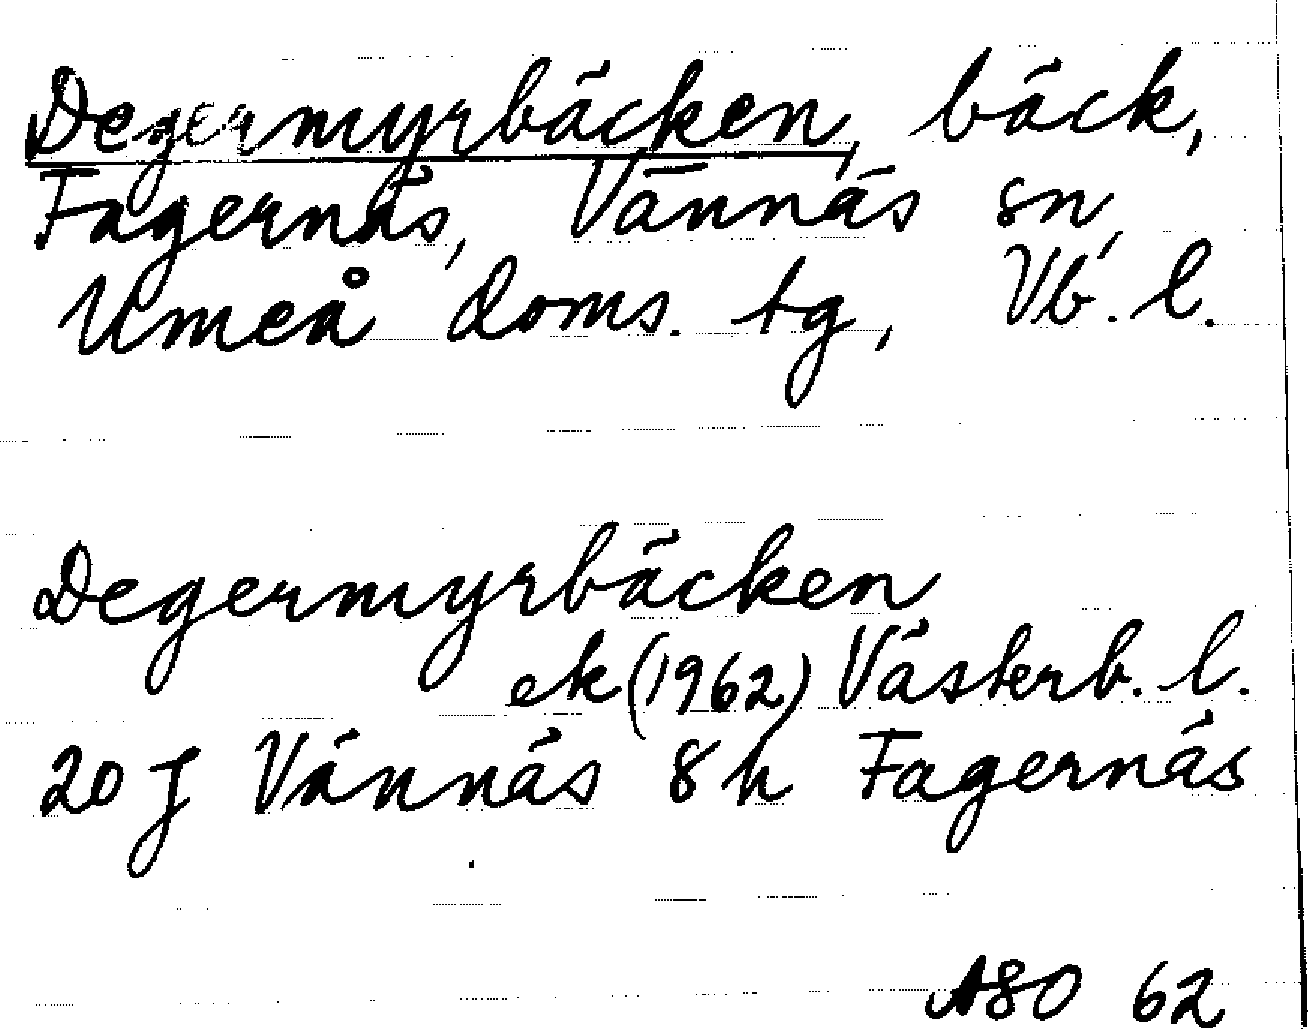 Degermyrbäcken, bäck,
Fagernäs, Vännäs sn,
Umeå doms. tg, Vb. l.
Degermyrbäcken
ek (1962) Västerb. l.
20 J Vännäs 8h Fagernäs
ASO 62